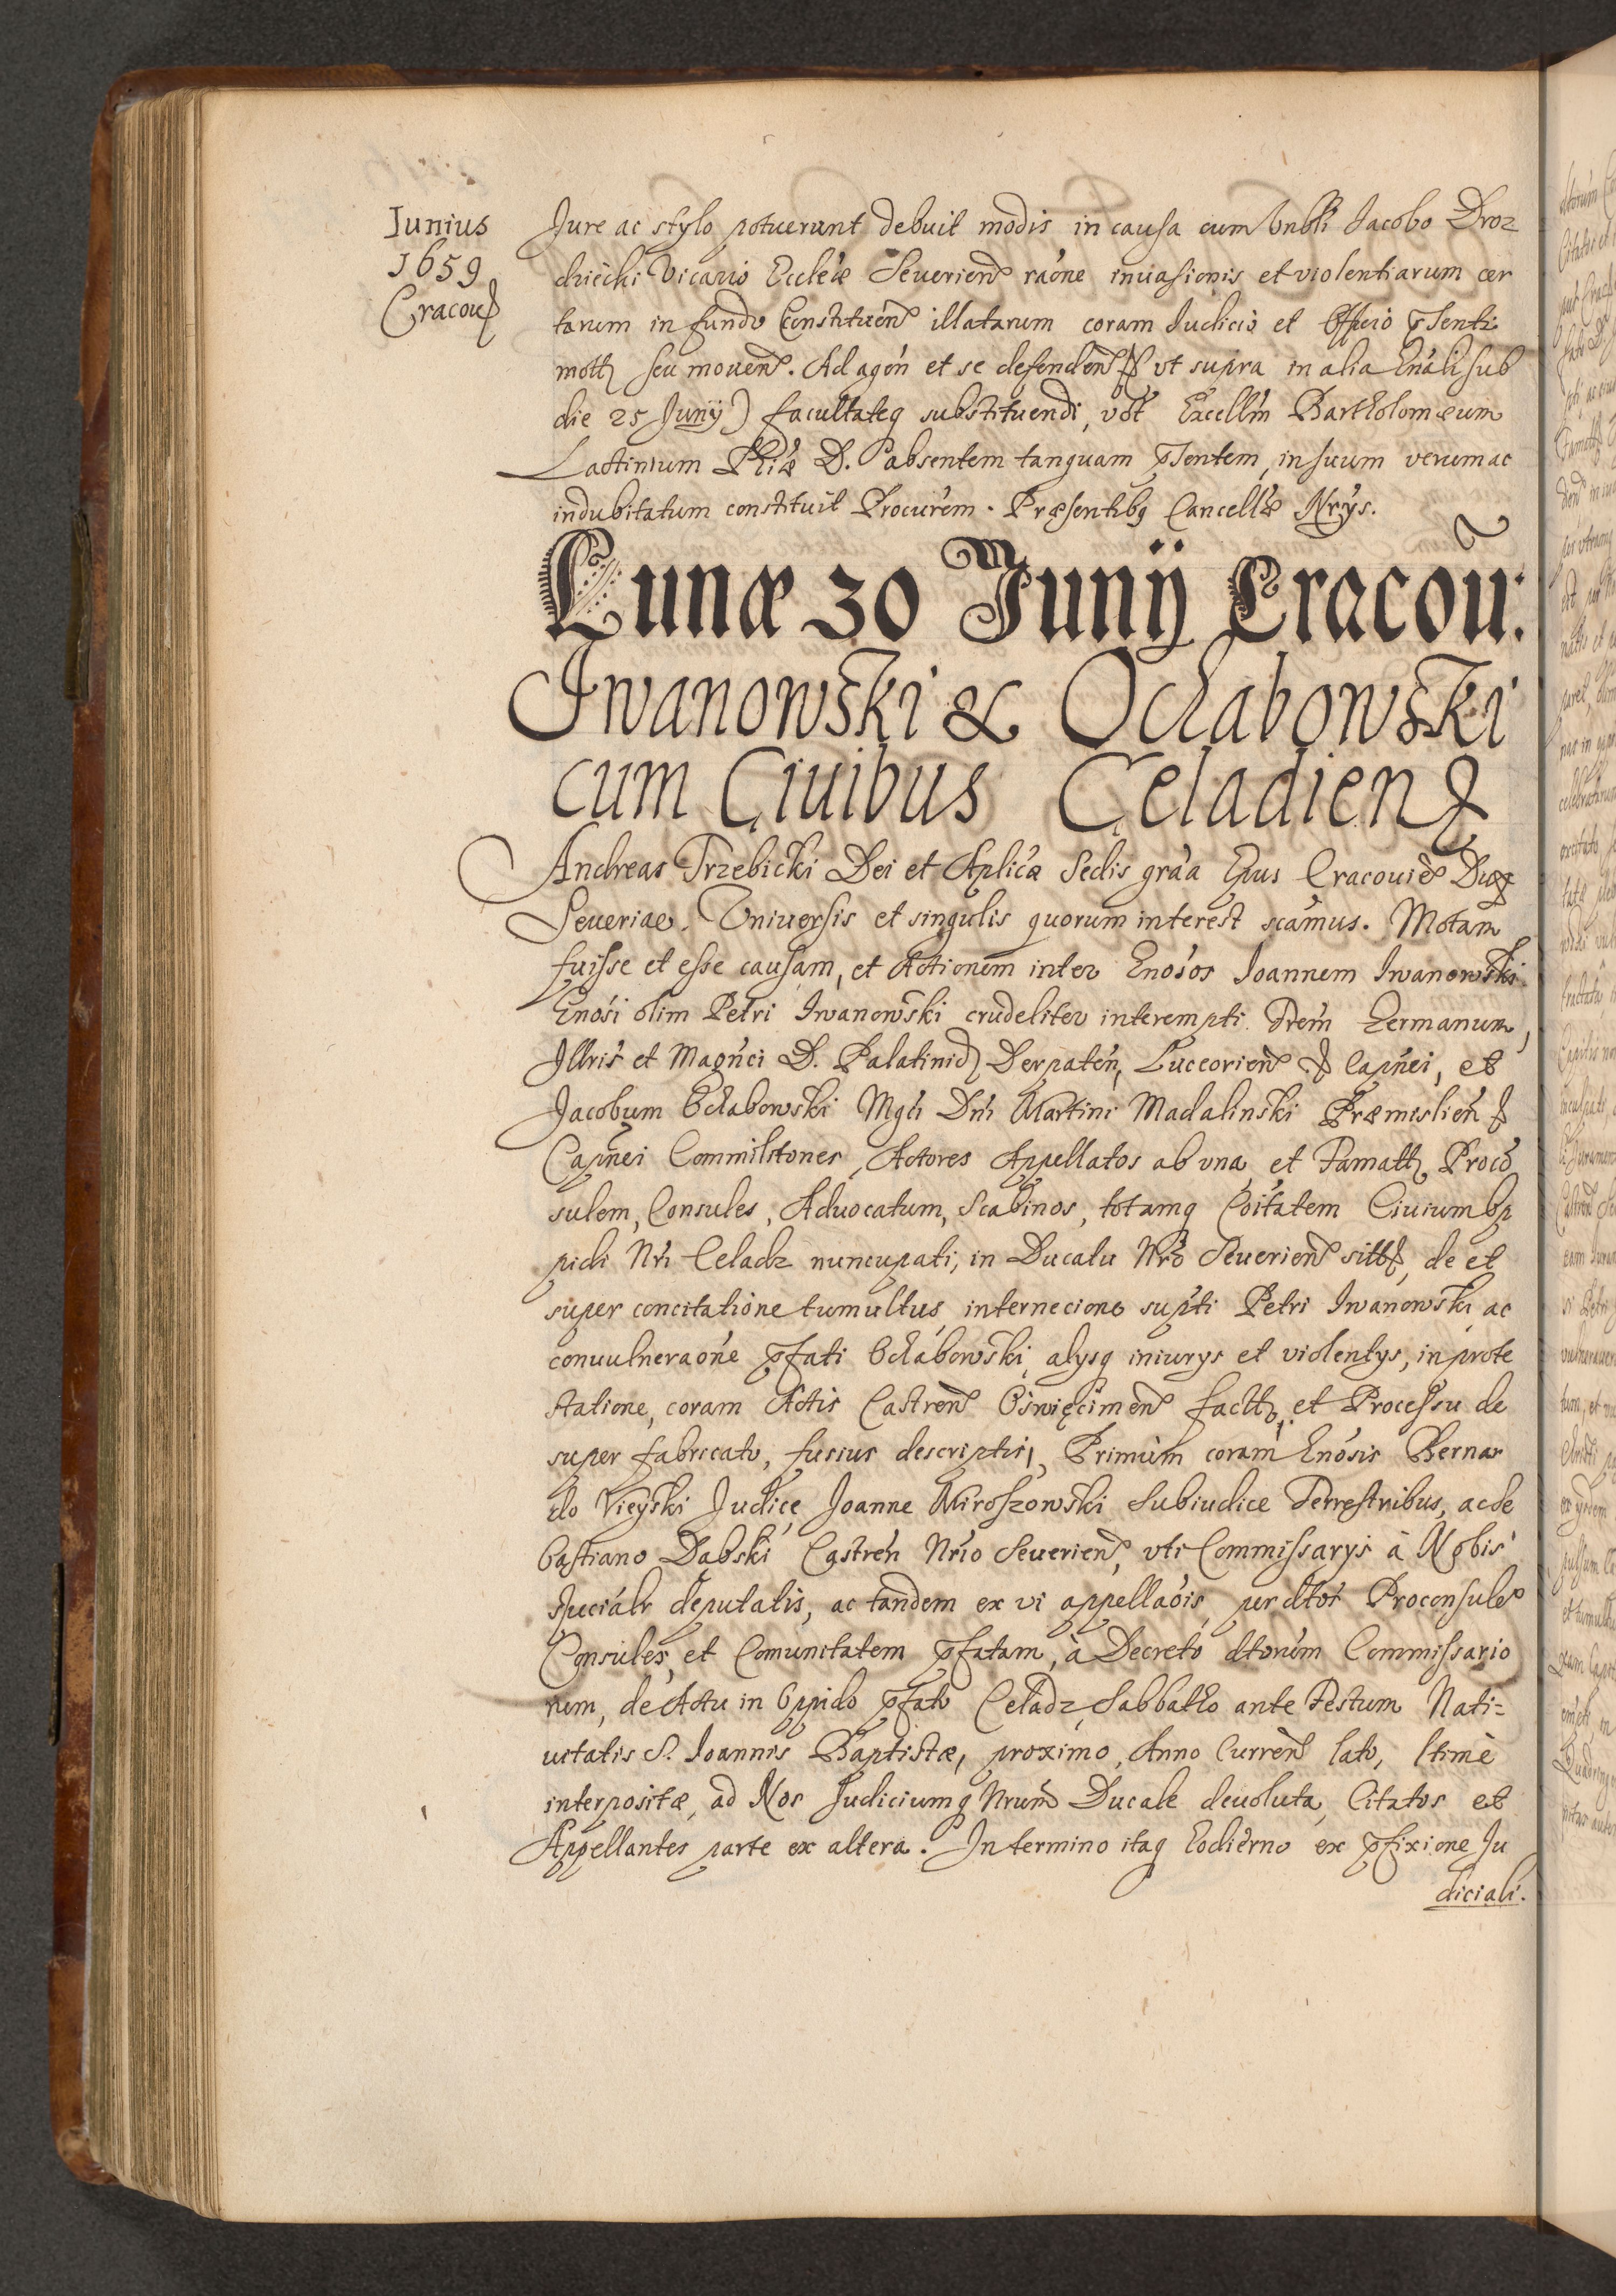 Junius
1659
Cracou
Jure ac stylo potuerunt debuit modis in causa cum Vnbli Jacobo Droz
dziecki Vicario Eccleiæ Seuerien raone inuasionis et violentiarum cer
tarum in fundo Constituen illatarum coram Judicio et Officio pnti
mott seu mouen. Ad agen et se defenden ut supra in alia Gnali sub
die 25 Junij) facultateq substituendi, vdt Excellm Bartholomæum
Lactinium Phiæ D. absentem tanquam pntem, in suum verum ac
indubitatum constituit Procurem. Præsentibq Cancellæ Nrys.
Lunæ 30 Junij Cracou:
Jwanowski & Ochabowski
cum Ciuibus Celadien
Andreas Trzebicki Dei et Aplicæ Sedis gra'a Epus Cracouien Dux
Seueriae. Vniuersis et singulis quorum interest scamus. Motam
fuisse et esse causam, et Actionem inter Gnosos Joannem Iwanowski
Gnosi olim Petri Iwanowski crudeliter interempti frem Germanum,
Jllris et Magnci D. Palatinid Derpaten, Luceorien & Capnei, et
Jacobum Ochabowski Mgci Dni Martini Madalinski Præmislien &
Capnei Commilitones, Actores Appellatos ab vna, et Famatt Proco
sulem, Consules, Aduocatum, Scabinos, totamq Coitatem Ciuium Op
pidi Nri Celadz nuncupati, in Ducatu Nro Seuerien sitt, de et
super concitatione tumultus, internecione supti Petri Iwanowski, ac
conuulneraone pfati Ochabowski, alysq iniurys et violentys, in prote
statione, coram Actis Castren Oswięcimen factt, et Processu de
super fabricato, fusius descriptis, Primum coram Gnosis Bernar
do Kieyski Judice, Joanne Miroszowski Subiudice Terrestribus, ac Se
bastiano Dąbski Castren Nrio Seuerien, vti Commissarys à Nobis
specialr deputatis, ac tandem ex vi appellaois, per dtos Proconsulem
Consules, et Comunitatem pfatam, à Decreto dtorum Commissario
rum, de Actu in Oppido pfato Celadz, Sabbatho ante Festum Nati=
uitatis S. Joannis Baptistæ, proximo, Anno Curren lato, ltimè
interpositæ, ad Nos Judiciumq Nrum Ducale deuoluta, Citatos et
Appellantes parte ex altera. In termino itaq hodierno ex pfixione Ju
diciali.